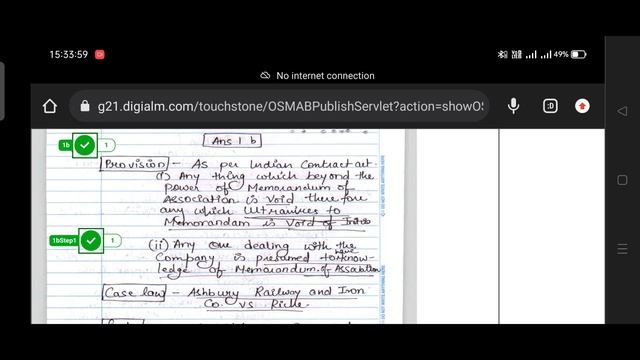 15:33:59
49%
No internet connection
g21.digialm.com/touchstone/OSMABPublishServlet?action=showOS
:D
Ans 1 b
1b 1
Provision - As per Indian Contract act.
(i) Any thing which beyond the
power of Memorandum of
Association is void there fore
any which Ultravires to
Memorandam is void of Initio
1bStep1 1
(ii) Any one dealing with the
Company is presumed to have know-
ledge of Memorandum of Assabtion
Case law - Ashbury Railway and Iron
Co. vs Riche